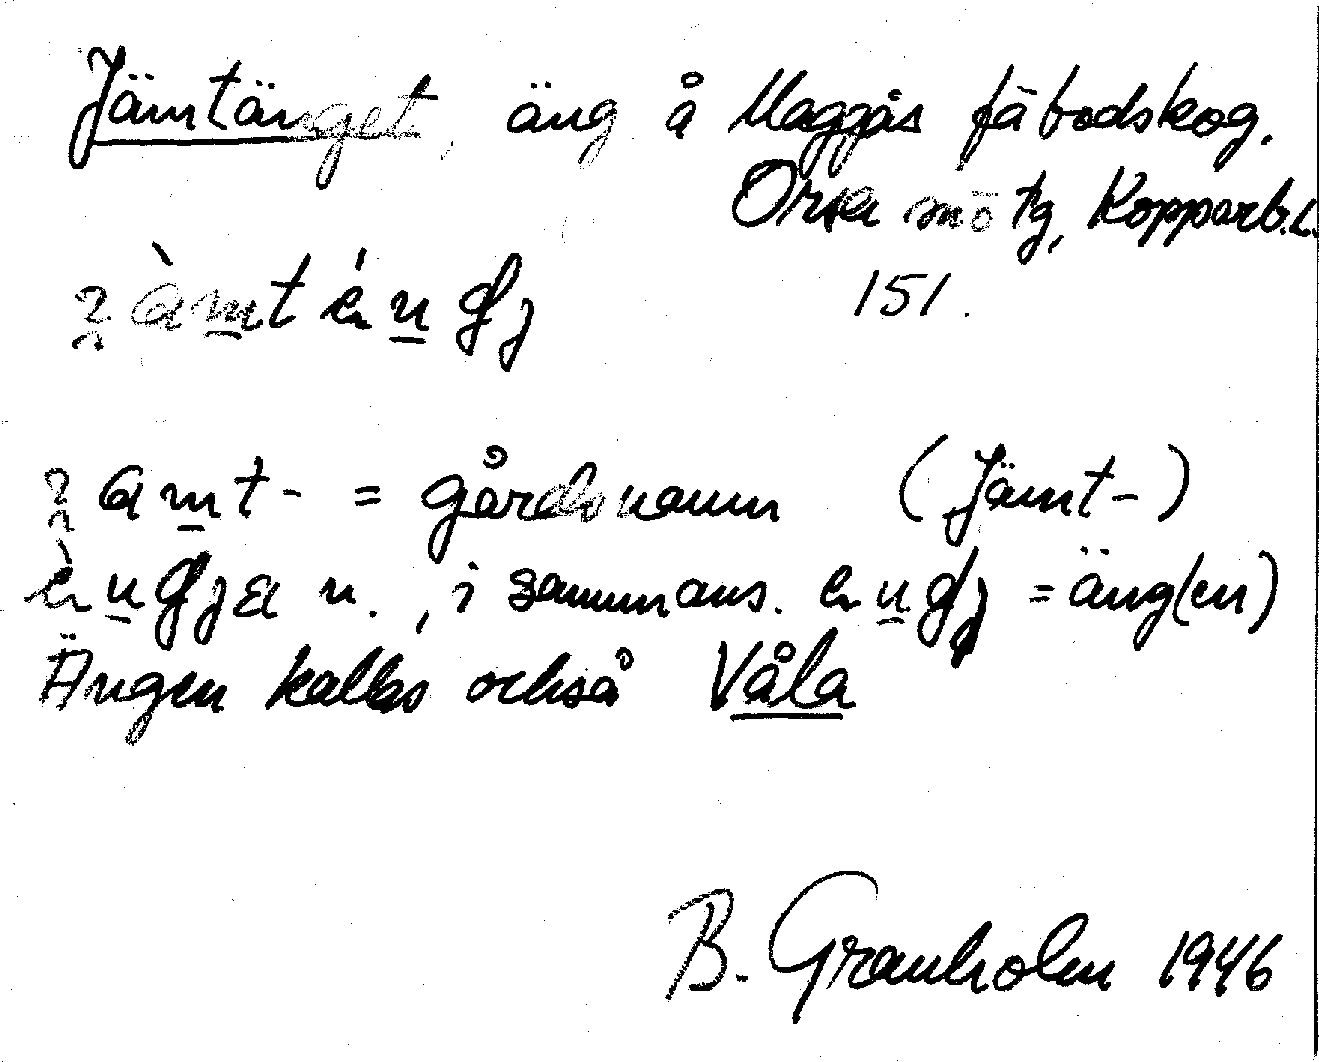 Jämtänget, äng å Maggås fäbodskog.
Orsa mötg, Kopparb. L.
151.
= gårdsnamn (Jämt-)
n., i sammans. = äng(en)
Ängen kallas också Våla
B. Granholm 1946